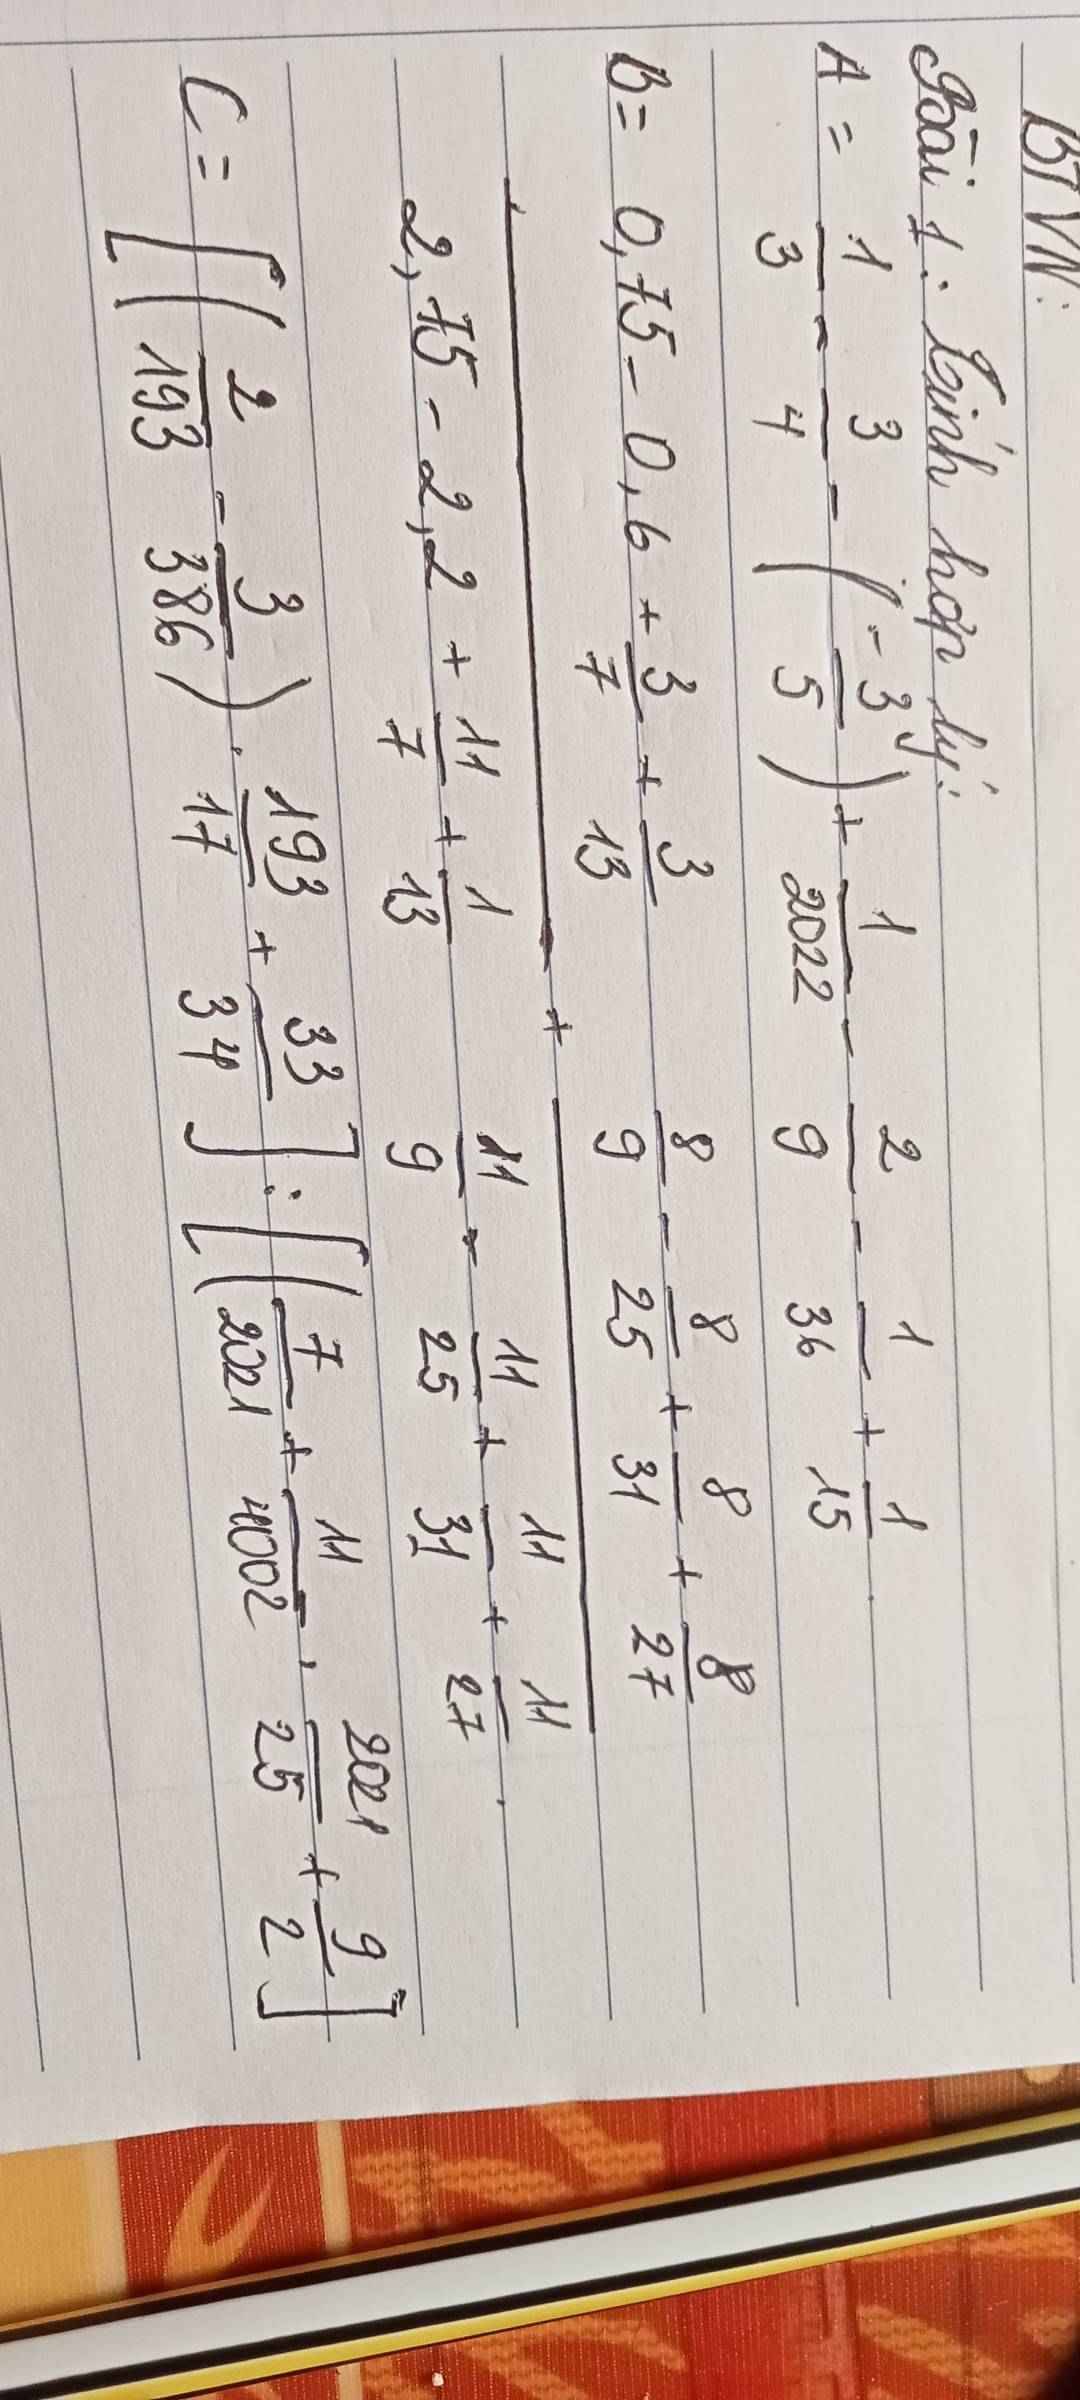 BTVN:
Bài 1: Tính hợp lý:
A = 1/3 - 3/4 - (-3/5) + 1/2022 - 2/9 - 1/36 + 1/15.
B = (0,75 - 0,6 + 3/7 + 3/13)/(2,75 - 2,2 + 11/7 + 1/13) + (8/9 - 8/25 + 8/31 + 8/27)/(11/9 - 11/25 + 11/31 + 11/27).
C = [(2/193 - 3/386) . 193/17 + 33/34] : [(7/2021 + 11/4002 . 2021/25 + 9/2]